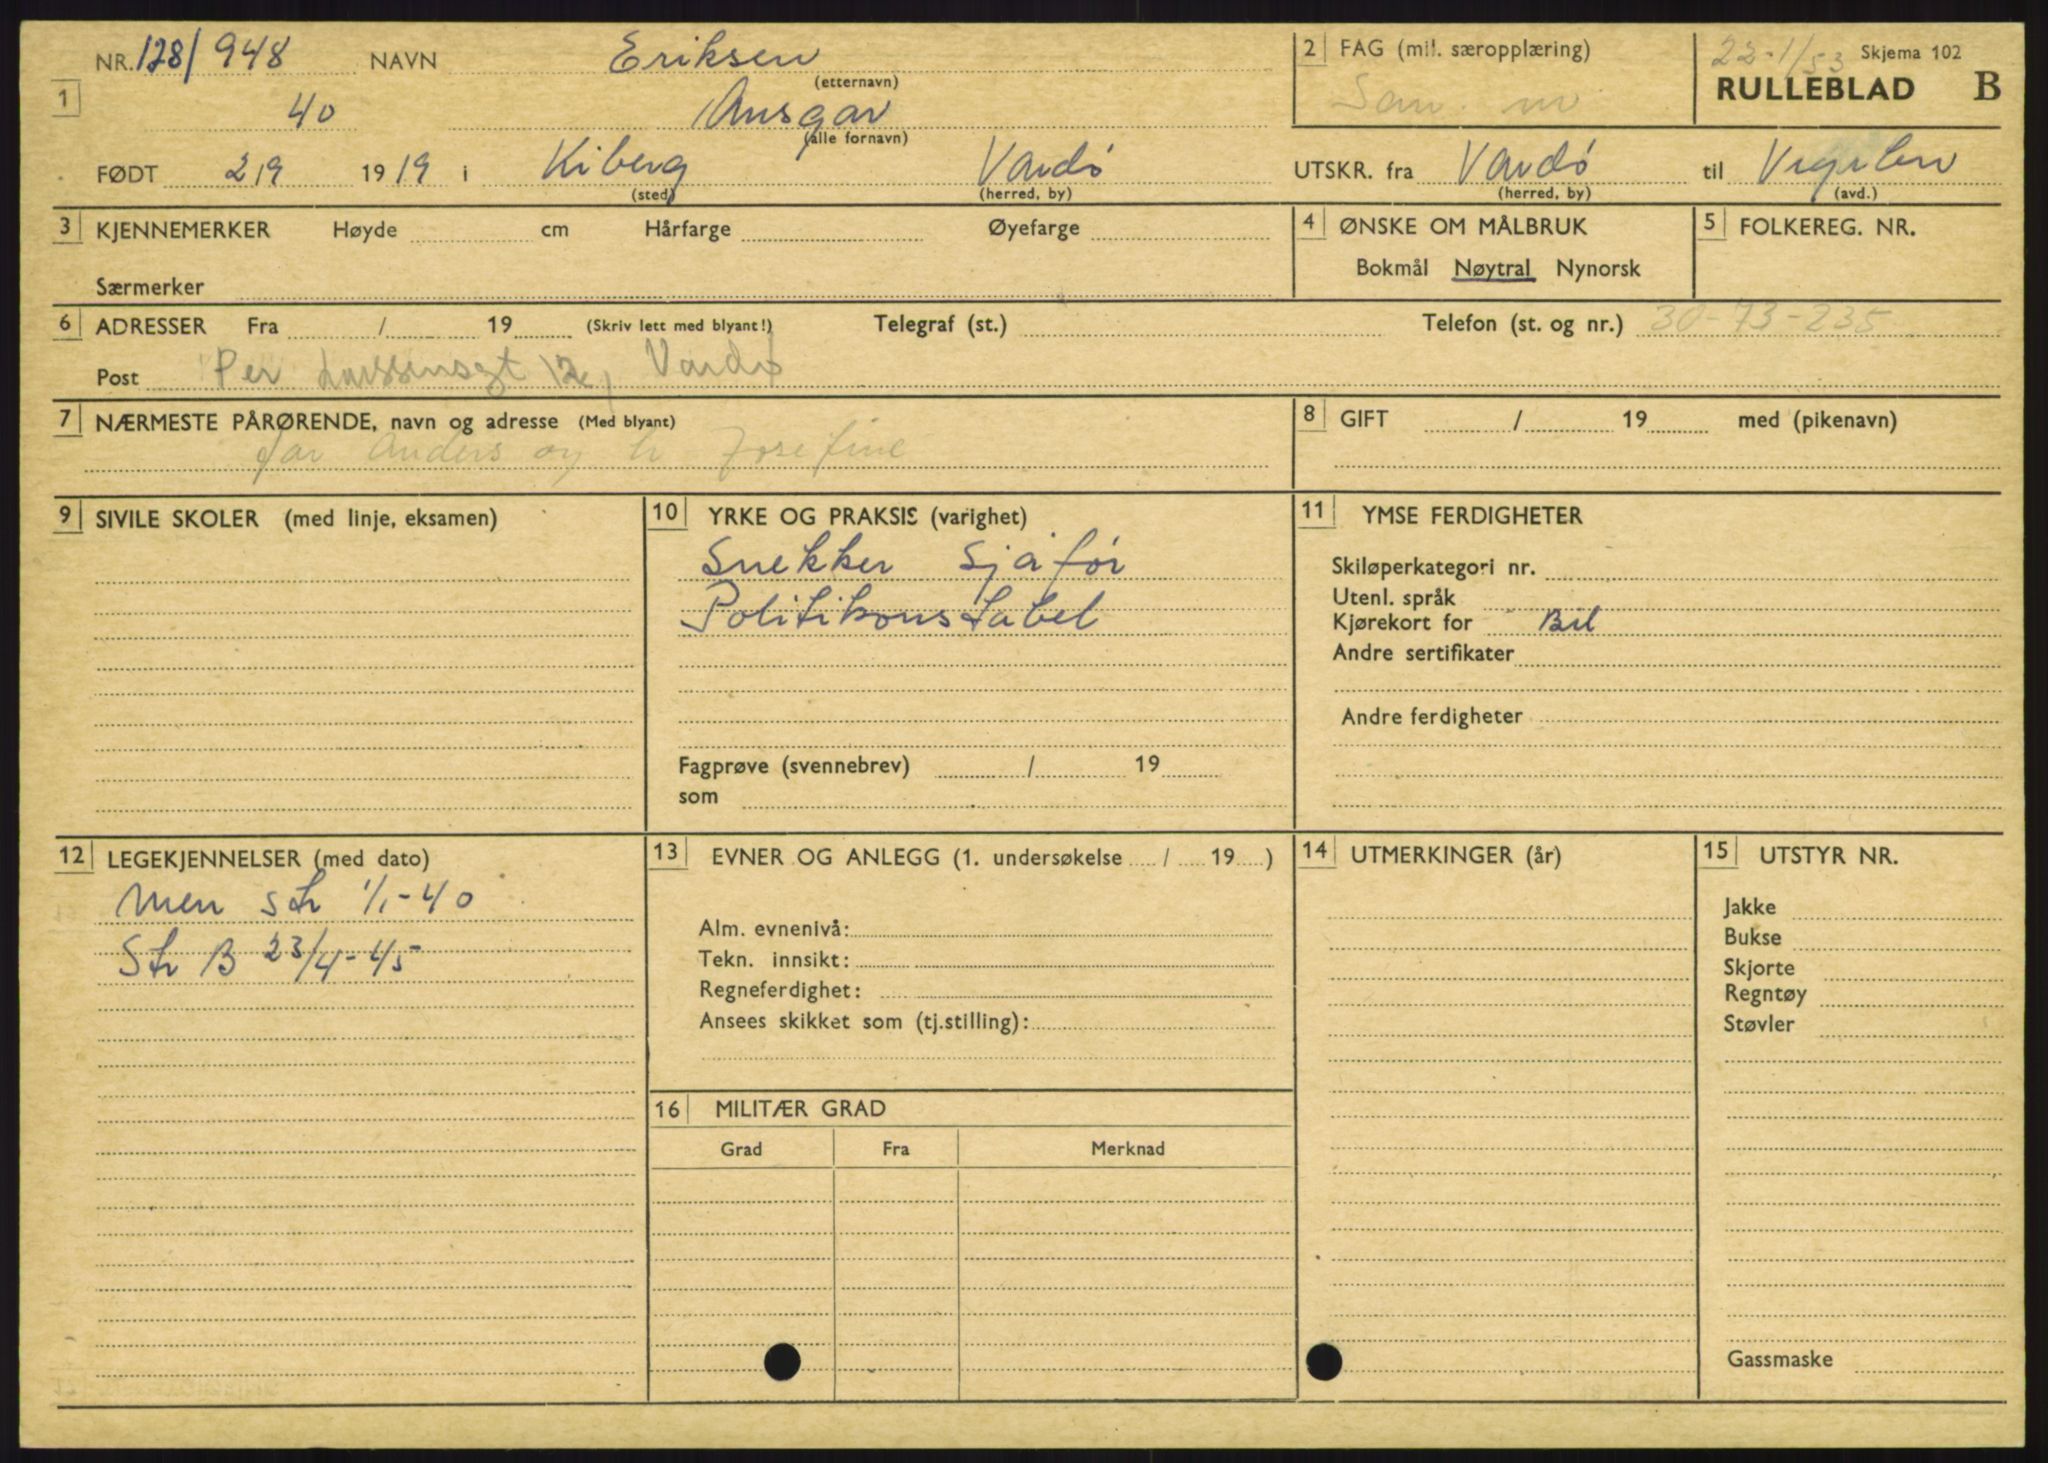 NR. 128/948 NAVN Eriksen (etternavn)
2 FAG (mil. særopplæring) San. m
22-1/53 Skjema 102
RULLEBLAD B
1 40 Ansgar (alle fornavn)
FØDT 2/9 1919 i Kiberg (sted) Vardø (herred, by) UTSKR. fra Vardø (herred, by) til (avd.)
3 KJENNEMERKER Høyde cm Hårfarge Øyefarge
Særmerker
4 ØNSKE OM MÅLBRUK
Bokmål Nøytral Nynorsk
5 FOLKEREG. NR.
6 ADRESSER Fra / 19 (Skriv lett med blyant!) Telegraf (st.) Telefon (st. og nr.) 30-73-235
Post Per Larssensgt 12, Vardø
7 NÆRMESTE PÅRØRENDE, navn og adresse (Med blyant)
far Anders og h Josefine
8 GIFT / 19 med (pikenavn)
9 SIVILE SKOLER (med linje, eksamen)
10 YRKE OG PRAKSIS (varighet)
Snekker Sjåfør
Politikonstabel
Fagprøve (svennebrev) / 19
som
11 YMSE FERDIGHETER
Skiløperkategori nr.
Utenl. språk
Kjørekort for Bil
Andre sertifikater
Andre ferdigheter
12 LEGEKJENNELSER (med dato)
Men str 1/1-40
Str B 23/4-45
13 EVNER OG ANLEGG (1. undersøkelse / 19 )
Alm. evnenivå:
Tekn. innsikt:
Regneferdighet:
Ansees skikket som (tj.stilling):
14 UTMERKINGER (år)
15 UTSTYR NR.
Jakke
Bukse
Skjorte
Regntøy
Støvler
Gassmaske
16 MILITÆR GRAD
Grad Fra Merknad